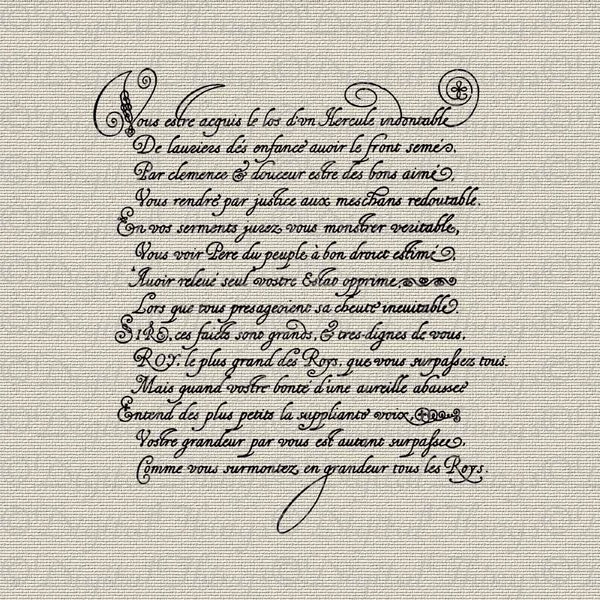 Vous estre acquis le los d'vn Hercule indontable
De lauriers dés enfance auoir le front semé,
Par clemence & douceur estre des bons aimé,
Vous rendre par justice aux meschans redoutable.
En vos serments jurez vous monstrer veritable,
Vous voir Pere du peuple à bon droict estimé,
Auoir releué seul vostre Estat opprimé,
Lors que tous presageoient sa cheute ineuitable.
SIRE, ces faicts sont grands, & tres-dignes de vous,
ROY, le plus grand des Roys, que vous surpassez tous.
Mais quand vostre bonté d'une aureille abaissee
Entend des plus petits la suppliante voix,
Vostre grandeur par vous est autant surpassee,
Comme vous surmontez en grandeur tous les Roys.